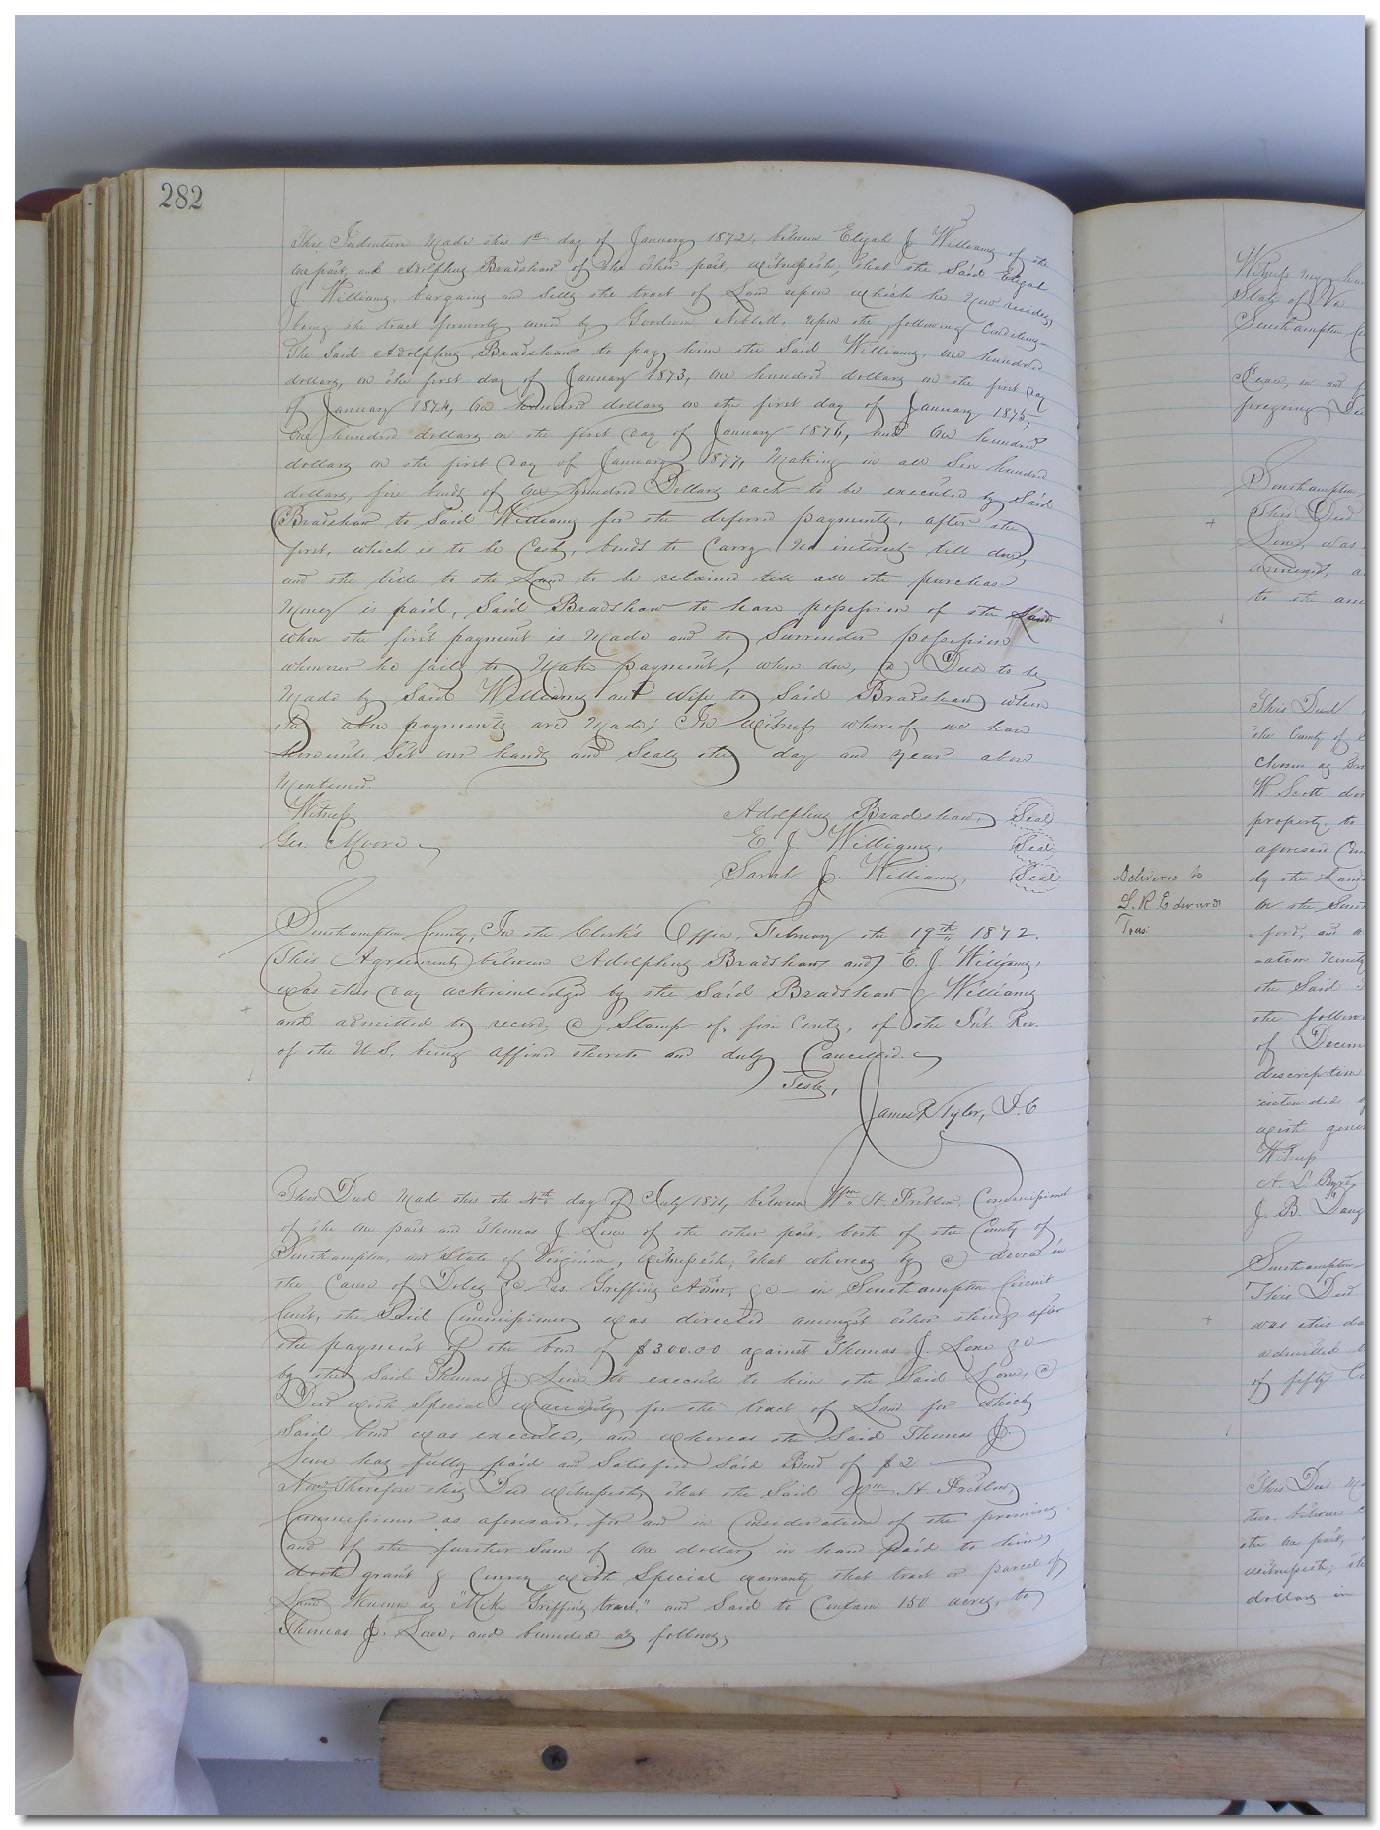 282
This Indenture Made this 1st day of January 1872, between Elijah J Williams of the
one part, and Adolphus Bradshaw of the other part, witnesseth, that the Said Elijah
J Williams, bargains and Sells the tract of Land upon which he now resides,
being the tract formerly owned by Gordon Niblett, upon the following Conditions
The Said Adolphus Bradshaw to pay him the Said Williams, one hundred
dollars, on the first day of January 1873, one hundred dollars on the first day
of January 1874, One hundred dollars on the first day of January 1875,
One hundred dollars on the first day of January 1876, and One hundred
dollars on the first day of January 1877, Making in all Six hundred
dollars, five bonds of One hundred Dollars each to be executed by Said
Bradshaw to Said Williams for the deferred payments, after the
first, which is to be Cash, bonds to Carry no interest till due,
and the title to the Land to be retained till all the purchase
Money is paid, Said Bradshaw to have possession of the Land
when the first payment is Made and to Surrender possession
whenever he fails to Make payment, when due, a Deed to be
Made by Said Williams and Wife to Said Bradshaw when
the above payments are Made; In Witness whereof we have
hereunto Set our hands and Seals the day and year above
Mentioned.
Witness Adolphus Bradshaw, Seal
Geo. Moore E J Williams, Seal
Sarah J. Williams, Seal
Southampton County, In the Clerk's Office, February the 19th 1872.
This Agreement between Adolphus Bradshaw and E. J. Williams,
was this day acknowledged by the Said Bradshaw & Williams
and admitted to record, a Stamp of five Cents, of the Int. Rev.
of the U.S. being affixed thereto and duly Cancelled.
Teste,
James R Tyler, D.C
This Deed Made this the 4th day of July 1871, between Wm H. Commissioner
of the one part and Thomas J. Love of the other part, both of the County of
Southampton, and State of Virginia, witnesseth; that whereas by a decree in
the Cause of Doles &c vs. Griffins Admr, &c in Southampton Circuit
Court, the Said Commissioner was directed amongst other things after
the payment of the bond of $300.00 against Thomas J. Love &c
by the Said Thomas J. Love to execute to him the Said Love, a
Deed with Special warranty for the tract of Land for which
Said bond was executed, and whereas the Said Thomas J.
Love has fully paid and Satisfied Said Bond of $2
Now Therefore this Deed witnesseth, that the Said Wm H.
Commissioner as aforesaid, for and in Consideration of the premises
and of the further Sum of one dollar, in hand paid to him,
doth grant & Convey with Special warranty that tract or parcel of
Land known as "Mike Griffins tract," and Said to Contain 150 acres, to
Thomas J. Love, and bounded as follows,
Witness my
State of Va
Southampton
foregoing
Southampton
This Deed
annexed,
to the
This Deed
the County of
chosen as
W. Scott
property, to
aforesaid
by the
on the
Delivered to
L. R. Edwards
Treas.
the Said
the follow
of Decem
description
intended
with gene
Witness
J. B.
Southampton
This Deed
was this da
admitted
of fifty
This Deed
two, between
the one part,
witnesseth,
dollars in